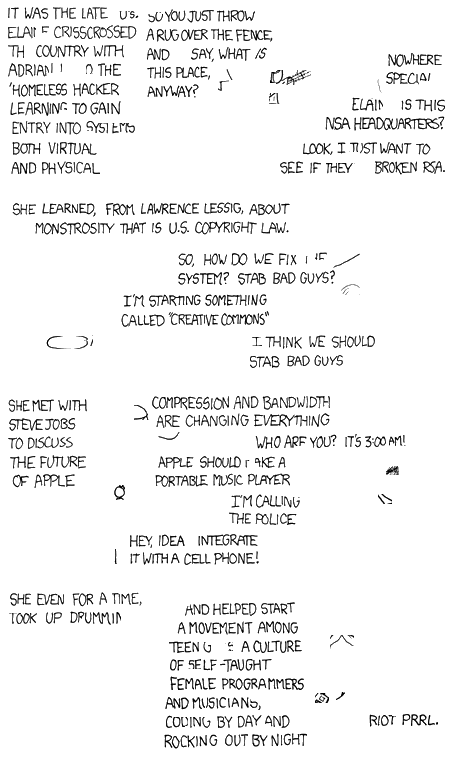 IT WAS THE LATE
CRISSCROSSED
COUNTRY WITH
ADRIAN THE
"HOMELESS HACKER
LEARNING TO GAIN
ENTRY INTO SYSTEMS
BOTH VIRTUAL
AND PHYSICAL
SO YOU JUST THROW
A RUG OVER THE FENCE,
AND SAY, WHAT IS
THIS PLACE,
ANYWAY?
NOWHERE
SPECIAL
IS THIS
NSA HEADQUARTERS?
LOOK, I JUST WANT TO
SEE IF THEY BROKEN RSA.
SHE LEARNED, FROM LAWRENCE LESSIG, ABOUT
MONSTROSITY THAT IS U.S. COPYRIGHT LAW.
SO, HOW DO WE FIX
SYSTEM? STAB BAD GUYS?
I'M STARTING SOMETHING
CALLED "CREATIVE COMMONS"
I THINK WE SHOULD
STAB BAD GUYS
SHE MET WITH
STEVE JOBS
TO DISCUSS
THE FUTURE
OF APPLE
COMPRESSION AND BANDWIDTH
ARE CHANGING EVERYTHING
WHO ARE YOU? IT'S 3:00 AM!
APPLE SHOULD MAKE A
PORTABLE MUSIC PLAYER
I'M CALLING
THE POLICE
HEY, IDEA INTEGRATE
IT WITH A CELL PHONE!
SHE EVEN FOR A TIME,
TOOK UP
AND HELPED START
A MOVEMENT AMONG
TEEN A CULTURE
OF SELF-TAUGHT
FEMALE PROGRAMMERS
AND MUSICIANS,
CODING BY DAY AND
ROCKING OUT BY NIGHT
RIOT PRRL.